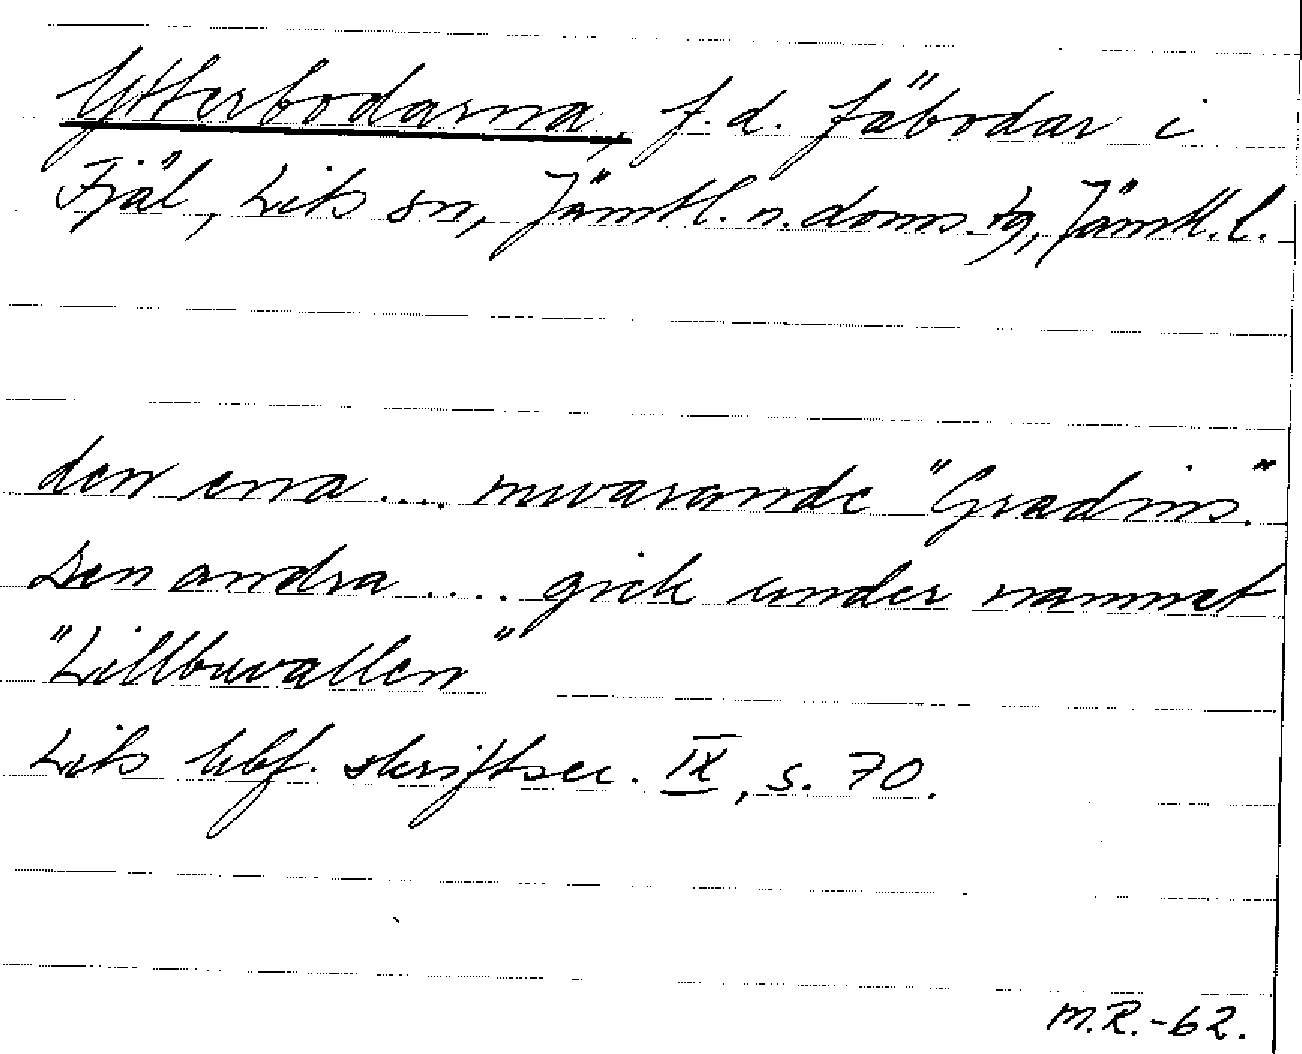 Ytterbodarna, f.d. fäbodar i
Fjäl, Lits sn, Jämtl. n. doms. tg, Jämtl. l.
den ena ... nuvarande "Gradins".
Den andra .... gick under namnet
"Lillbuvallen"
Lits hbf. skriftser. IX, s. 70.
M.R.-62.